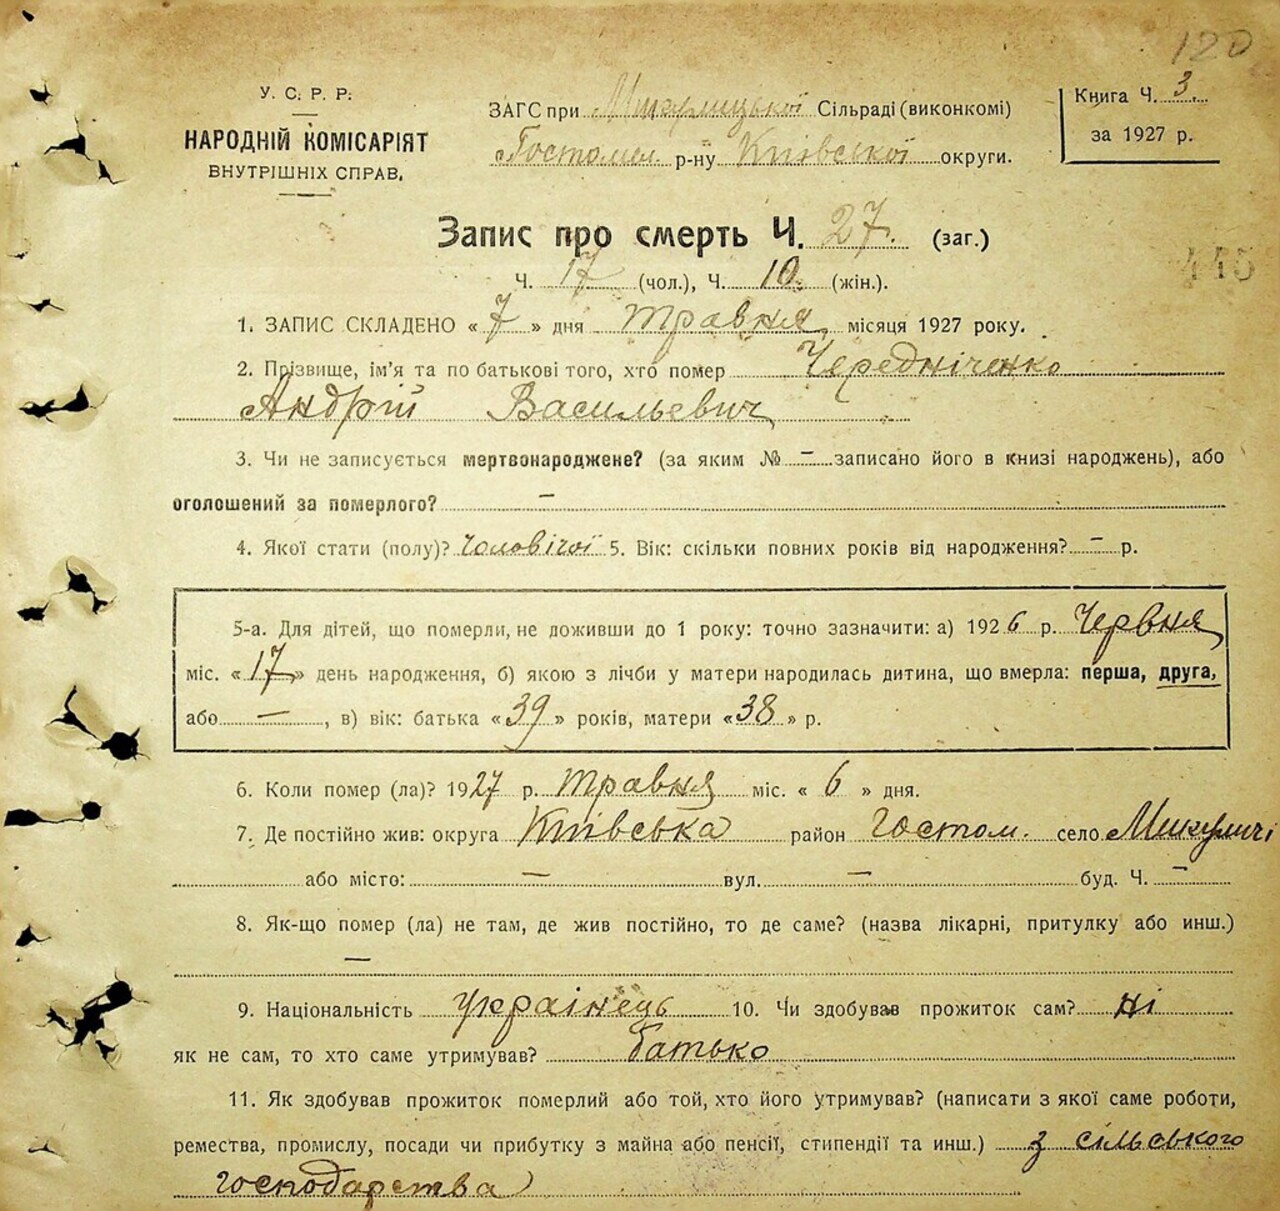 120
У. С. Р. Р.
НАРОДНІЙ КОМІСАРІЯТ
ВНУТРІШНІХ СПРАВ.
ЗАГС при Микулицької Сільраді (виконкомі)
Гостомел. р-ну Київської округи.
Книга Ч. 3.
за 1927 р.
Запис про смерть Ч. 27. (заг.)
445
Ч. 17 (чол.), Ч. 10. (жін.).
1. ЗАПИС СКЛАДЕНО « 7 » дня травня місяця 1927 року.
2. Прізвище, ім'я та по батькові того, хто помер Чередніченко
Андрій Васильевич
3. Чи не записується мертвонароджене? (за яким № — записано його в книзі народжень), або
оголошений за померлого? —
4. Якої стати (полу)? чоловічої 5. Вік: скільки повних років від народження? — р.
5-а. Для дітей, що померли, не доживши до 1 року: точно зазначити: а) 1926 р. Червня
міс. « 17 » день народження, б) якою з лічби у матери народилась дитина, що вмерла: перша, друга,
або — , в) вік: батька « 39 » років, матери « 38 » р.
6. Коли помер (ла)? 1927 р. травня міс. « 6 » дня.
7. Де постійно жив: округа Київська район Гостом. село Микуличі
або місто: — вул. — буд. Ч. —
8. Як-що помер (ла) не там, де жив постійно, то де саме? (назва лікарні, притулку або инш.)
—
9. Національність українець 10. Чи здобував прожиток сам? ні
як не сам, то хто саме утримував? батько
11. Як здобував прожиток померлий або той, хто його утримував? (написати з якої саме роботи,
ремества, промислу, посади чи прибутку з майна або пенсії, стипендії та инш.) з сільського
господарства